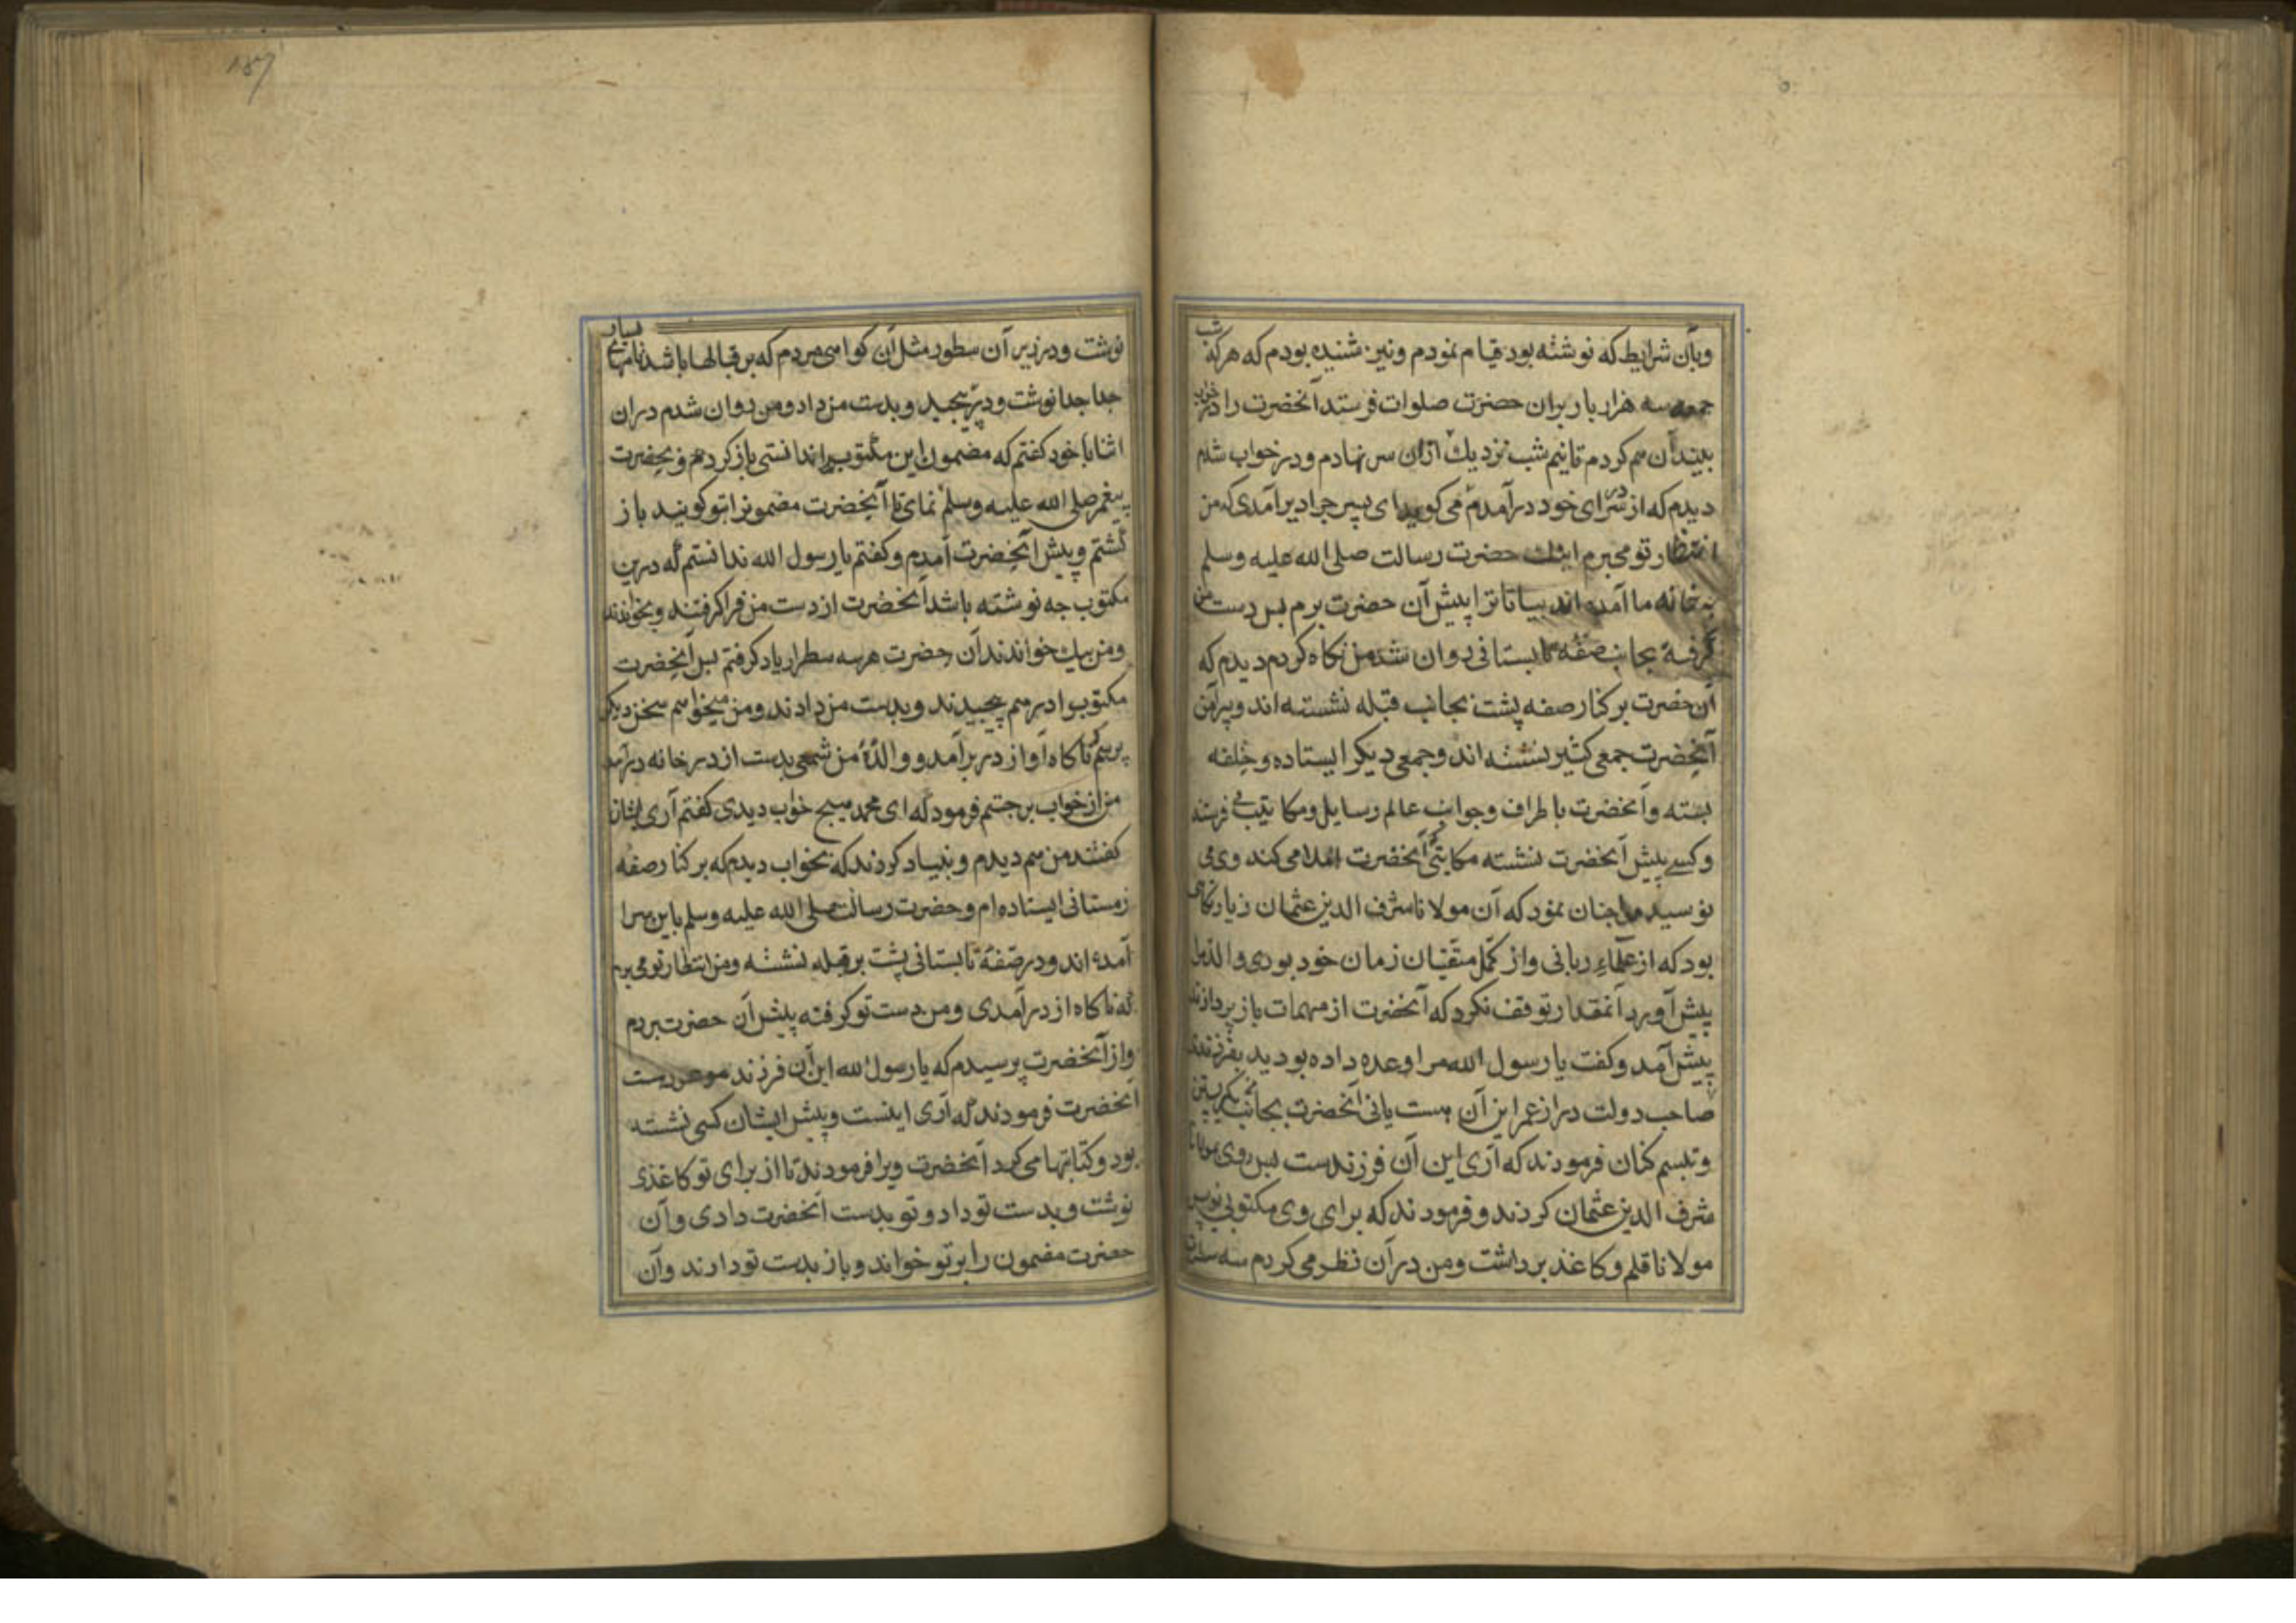 وبآن شرایط که نوشته بود قیام نمودم ونیز شنیده بودم که هرکه شب
جمعه سه هزار بار بران حضرت صلوات فرستد آنحضرت را در خواب
بیند آن هم کردم تا نیم شب نزدیك ازان سر نهادم ودر خواب شدم
دیدم که از در سرای خود درآمدم می کوید ای پسر جرا دیر آمدی که من
انتظار تو میبرم اینك حضرت رسالت صلی الله علیه وسلم
به خانه ما آمده اند بیا تا ترا پیش آن حضرت برم پس دست من
گرفته بجانب صفه تابستانی روان شد من نکاه کردم دیدم که
آن حضرت بر کنار صفه پشت بجانب قبله نشسته اند وپیرامن
آنحضرت جمعی کثیر نشسته اند وجمعی دیکر ایستاده وحلقه
بسته وآنحضرت باطراف وجوانب عالم رسایل ومکاتیب می فرستد
وکسے پیش آنحضرت نشسته مکاتبتی آنحضرت املا می کند وی می
نویسد مرا جنان نمود که آن مولانا شرف الدین عثمان زیارتکاهی
بود که از علماء ربانی واز کمل متقیان زمان خود بودی والده مرا
پیش آورد آنمقدار توقف نکرد که آنحضرت از مهمات باز پردازند
پیش آمد وکفت یا رسول الله مرا وعده داده بودید بفرزندی
صاحب دولت دراز عمر این آن هست یا نی آنحضرت بجانب من نکریستن
وتبسم کنان فرمودند که آری این آن فرزندست پس روی بمولانا
شرف الدین عثمان کردند وفرمودند که برای وی مکتوبی نویس
مولانا قلم وکاغذ برداشت ومن در آن نظر می کردم سه سطر
نوشت ودر زیر آن سطور مثل آن کواهی مردم که بر قبالها باشد نامهای بسیار
جدا جدا نوشت ودر پیجید وبدست من داد ومن روان شدم در آن
اثنا با خود کفتم که مضمون این مکتوب را ندانستی باز کرد وبحضرت
پیغمبر صلی الله علیه وسلم نمای تا آنحضرت مضمونرا بتو کویند باز
گشتم وپیش آنحضرت آمدم وکفتم یا رسول الله ندانستم که درین
مکتوب جه نوشته باشد آنحضرت از دست من فرا کرفتند وبخواندند
ومن بیك خواندن آن حضرت هر سه سطر را یاد کرفتم پس آنحضرت
مکتوب را درهم پیجیدند وبدست من دادند ومن میخواهم سخن دیکر
پرسم که ناکاه آواز در برآمد ووالدۀ من شمعی بدست از در خانه درآمد
من از خواب برجستم فرمود که ای محمد هیج خواب دیدی کفتم آری ایشان
کفتند من هم دیدم وبنیاد کردند که بخواب دیدم که بر کنار صفه
زمستانی ایستاده ام وحضرت رسالت صلی الله علیه وسلم باین سرا
آمده اند ودر صفۀ تابستانی پشت بر قبله نشسته ومن انتظار تو می برم
که ناکاه از در آمدی ومن دست تو کرفته پیش آن حضرت بردم
واز آنحضرت پرسیدم که یا رسول الله این آن فرزند موعودست
آنحضرت فرمودند که آری اینست وپیش ایشان کسی نشسته
بود وکتابتها می کرد آنحضرت ویرا فرمودند تا از برای تو کاغذی
نوشت وبدست تو داد وتو بدست آنحضرت دادی وآن
حضرت مضمون را بر تو خواند وباز بدست تو دادند وآن